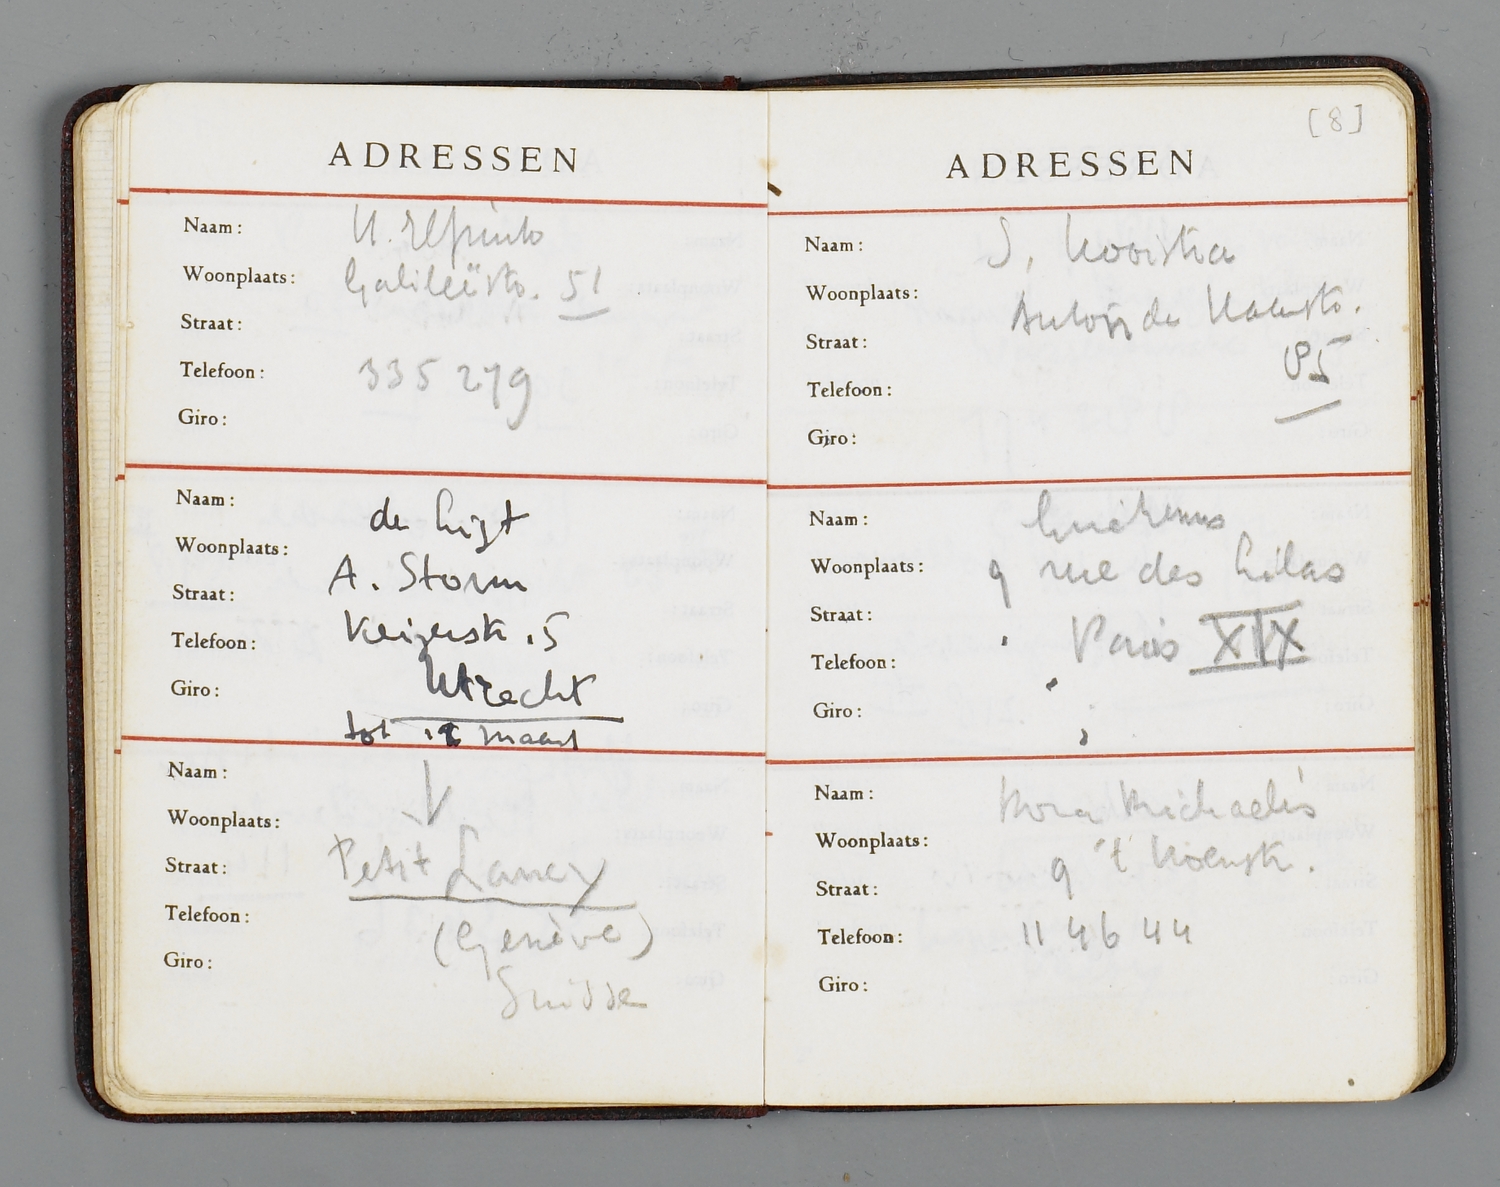 ADRESSEN
Naam:
Woonplaats: 51
Straat:
Telefoon: 335 279
Giro:
Naam: de
Woonplaats: A. Storm
Straat:
Telefoon: 5
Utrecht
Giro:
tot maart
Naam:
Woonplaats:
Straat: Petit Lancy
Telefoon: (Genève)
Giro: Suisse
[8]
ADRESSEN
Naam: S. Kooistra
Woonplaats:
Straat:
Telefoon:
Giro:
Naam:
Woonplaats: 9 rue des Lilas
Straat: Paris XIX
Telefoon:
Giro:
Naam: Michaelis
Woonplaats: 9 't
Straat:
Telefoon: 11 46 44
Giro: